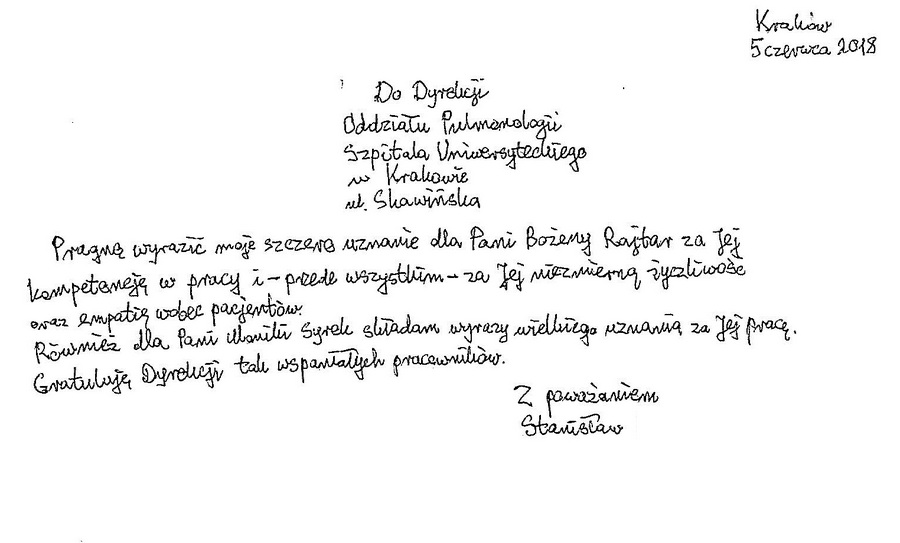 Kraków
5 czerwca 2018
Do Dyrekcji
Oddziału Pulmonologii
Szpitala Uniwersyteckiego
w Krakowie
ul. Skawińska
Pragnę wyrazić moje szczere uznanie dla Pani Bożeny Rajtar za Jej
kompetencję w pracy i – przede wszystkim – za Jej niezmierną życzliwość
oraz empatię wobec pacjentów.
Również dla Pani Moniki Syrek składam wyrazy wielkiego uznania za Jej pracę.
Gratuluję Dyrekcji tak wspaniałych pracowników.
Z poważaniem
Stanisław